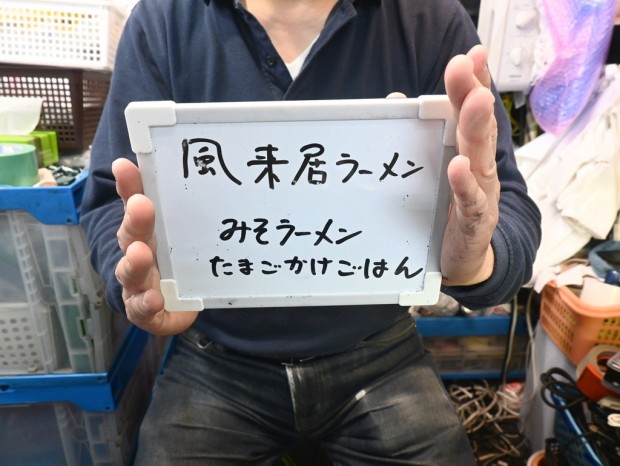 風来居ラーメン
みそラーメン
たまごかけごはん